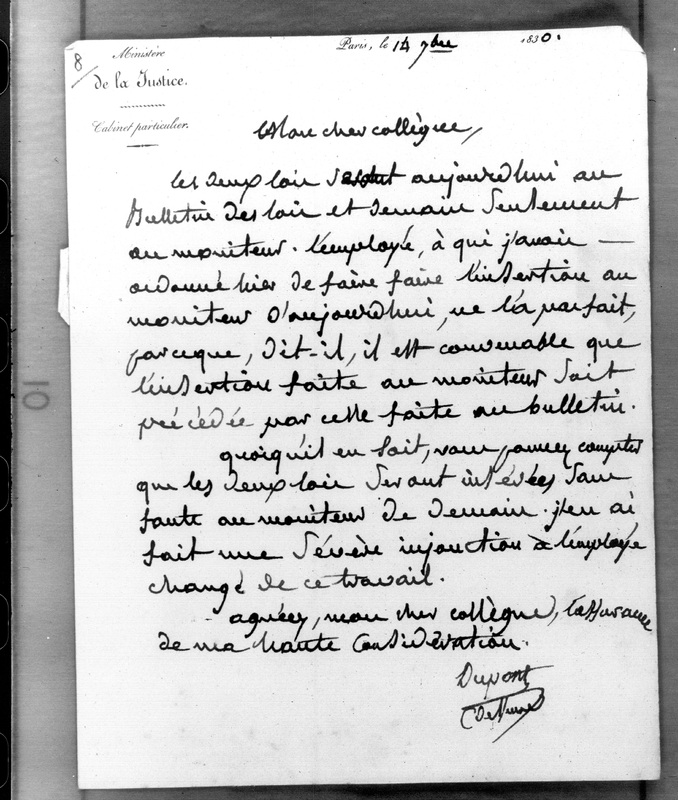 8
Ministère
de la Justice.
Cabinet particulier.
Paris, le 14 7bre 1830.
Mon cher collègue,
les deux loix sont aujourd'hui au
Bulletin des loix et demain seulement
au moniteur. l'employé, à qui j'avois
ordonné hier de faire faire l'insertion au
moniteur d'aujourd'hui, ne l'a pas fait,
parceque, dit-il, il est convenable que
l'insertion faite au moniteur soit
précédée par celle faite au bulletin.
quoiqu'il en soit, vous pouvez compter
que les deux loix seront insérées sans
faute au moniteur de demain. j'en ai
fait une sévère injonction à l'employé
chargé de ce travail.
agréez, mon cher collègue, l'assurance
de ma haute considération.
Dupont
(de l'eure)
10